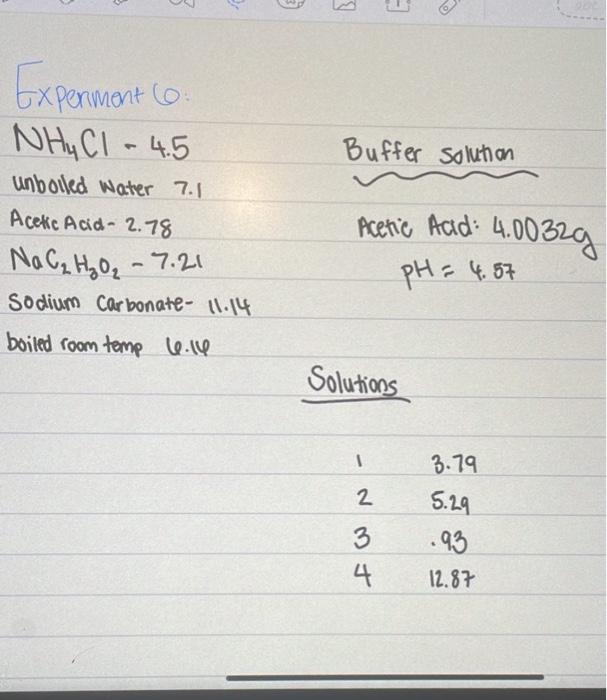 Experiment 6:
NH4Cl - 4.5
unboiled water 7.1
Acetic Acid - 2.78
NaC2H3O2 - 7.21
Sodium Carbonate - 11.14
boiled room temp 6.16
Buffer Solution
Acetic Acid: 4.0032g
pH = 4.57
Solutions
1 3.79
2 5.29
3 .93
4 12.87